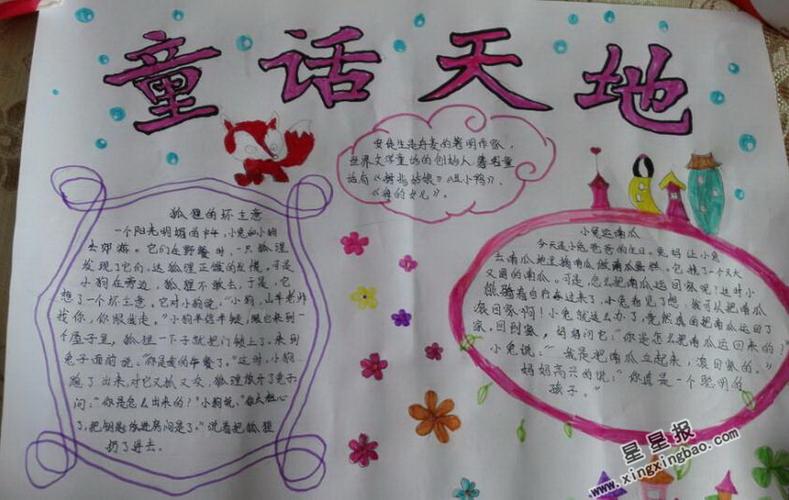 童话天地
安徒生是丹麦的著名作家，
世界文学童话的创始人
话有《拇指姑娘》《丑小鸭》、
《海的女儿》。
狐狸的坏主意
一个阳光明媚的中午，小兔和小狗
去郊游。它们在野餐时，一只狐狸
发现了它们，这狐狸正饿的发慌。可是
小狗在旁边，狐狸不敢去，于是，它
想了一个坏主意。它对小狗说：“小狗，山羊老师
找你，你跟我走。”小狗半信半疑，跟它来到一
个屋子里，狐狸一下子就把门锁上了。来到
兔子面前说：“你是我的午餐了。”这时，小狗
跑了出来，对它又抓又咬，狐狸放开了兔子
问：“你是怎么出来的？”小狗说：“你太粗心
了，把钥匙放进房间是了。”说着把狐狸
扔了出去。
小兔运南瓜
今天是小兔爸爸的生日。兔妈让小兔
去南瓜地里摘南瓜做南瓜蛋糕。它摘了一个又大
又圆的南瓜。可是，怎么把南瓜运回家呢！这时小
熊骑着自行车过来了，小兔看见了想：我可以把南瓜
滚回家啊！小兔就这么办了，竟然真的把南瓜运回了
家，回到家，妈妈问它：“你是怎么把南瓜运回来的？”
小兔说：“我是把南瓜立起来，滚回家的。”
妈妈高兴的说：“你真是一个聪明的
孩子。”
星星报
www.xingxingbao.com